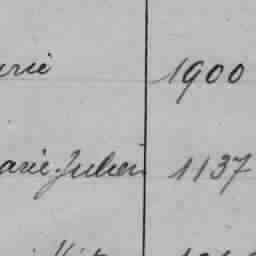 urie 1900
arie Julien 1137